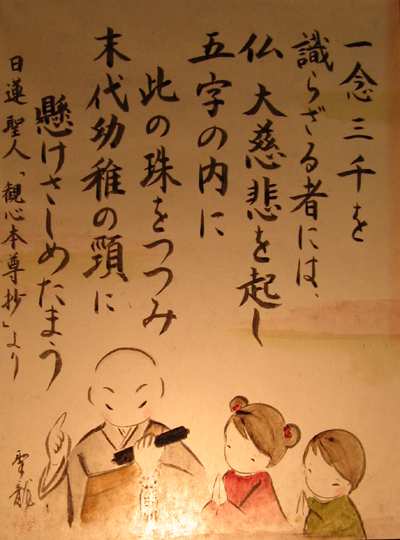 一念三千を
識らざる者には、
仏 大慈悲を起し
五字の内に
此の珠をつつみ
末代幼稚の頸に
懸けさしめたまう
日蓮聖人「観心本尊抄」より